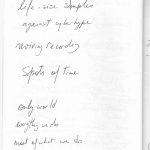 life-size samples
against cybertype
reviving recording
Spots of time
only world
everything we do
most of what we do